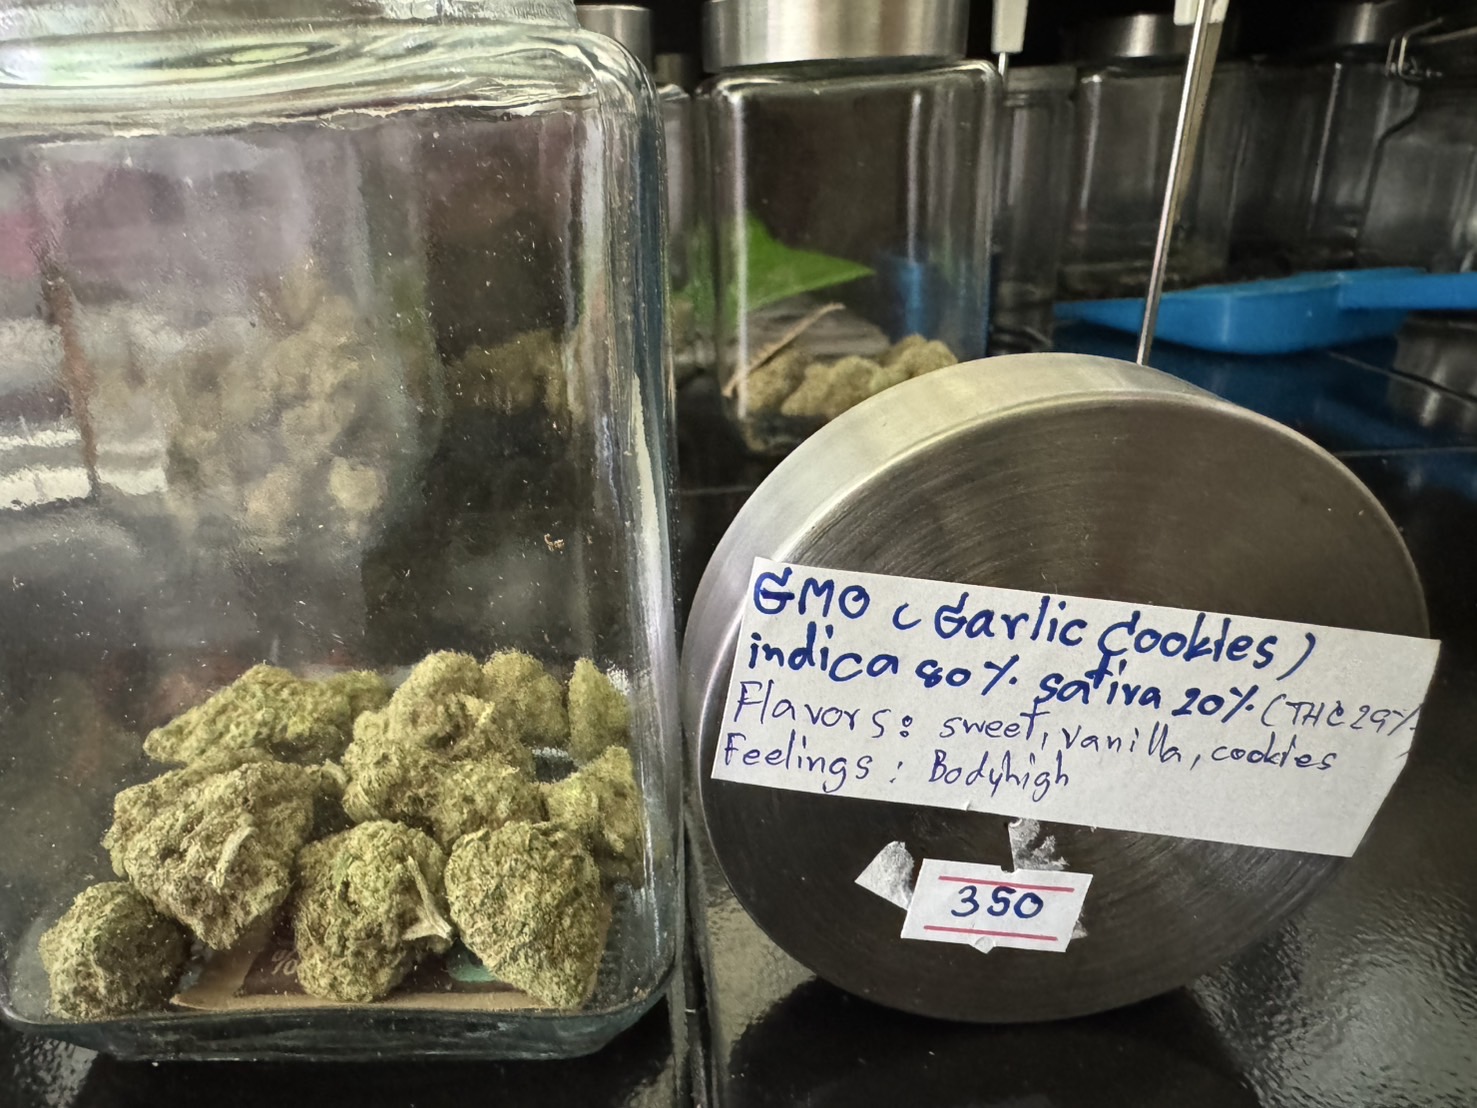 GMO (Garlic Cookies)
indica 80% sativa 20% (THC 29%
Flavors: sweet, vanilla, cookies
Feelings: Bodyhigh
350
%